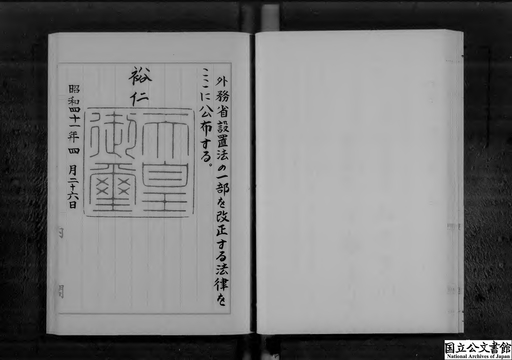 外務省設置法の一部を改正する法律を
ここに公布する。
裕仁
天皇
御璽
昭和四十一年四月二十六日
国立公文書館
National Archives of Japan